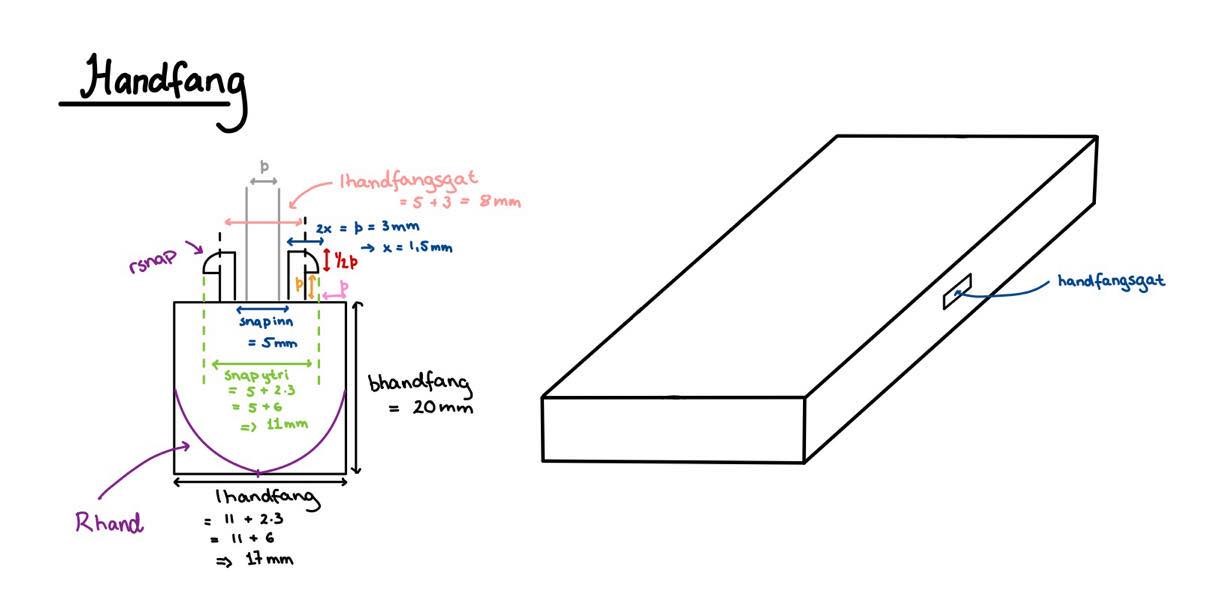 Handfang
þ
lhandfangsgat
= 5 + 3 = 8mm
2x = þ = 3mm
→ x = 1,5mm
rsnap
½þ
þ
þ
snapinn
= 5mm
snapytri
= 5 + 2·3
= 5 + 6
=> 11mm
bhandfang
= 20mm
Rhand
lhandfang
= 11 + 2·3
= 11 + 6
=> 17mm
handfangsgat